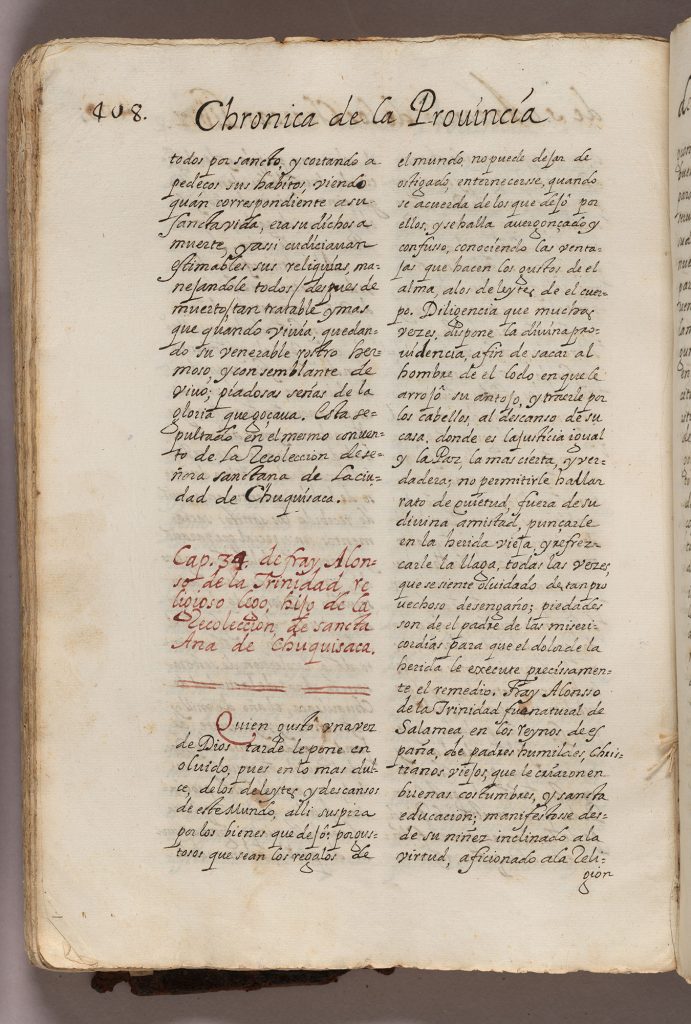 408.
Chronica de la Provincia
todos por sancto, y cortando a
pedeços sus habitos, viendo
quan correspondiente a su
sancta vida, era su dichosa
muerte, y assi cudiciauan
estimables sus reliquias, ma=
nejandole todos / despues de
muerto / tan tratable y mas
que quando viuia, quedan=
do su venerable rostro her=
moso, y con semblante de
viuo; piadosas señas de la
gloria que goçaua. Esta se=
pultado en el mesmo conuen=
to de la Recoleccion de se=
ñora sanctana de la ciu=
dad de Chuquisaca.
Cap. 34. de fray Alon=
so de la Trinidad, re
ligioso lego, hijo de la
Recoleccion, de sancta
Ana de Chuquisaca.
Quien gustô vna vez
de Dios tarde le pone en
oluido, pues en lo mas dul=
ce, de los deleytes y descansos
de este Mundo, alli suspira
por los bienes que dejô; por gus=
tosos que sean los regalos de
el mundo, no puede dejar de
ostigado, enternecerse, quando
se acuerda de los que dejô por
ellos, y se halla auergonçado y
confuso, conociendo las venta=
jas que hacen los gustos de el
alma, a los deleytes de el cuer=
po. Diligencia que muchas
vezes, dispone la diuina pro=
uidencia, afin de sacar al
hombre de el lodo en que le
arrojô su antojo, y traerle por
los cabellos, al descanso de su
casa. donde es la justicia igual
y la Paz, la mas cierta, y ver=
dadera; no permitirle hallar
rato de quietud, fuera de su
diuina amistad, punçarle
en la herida vieja, y refrez=
carle la llaga, todas las vezes,
que se siente oluidado de, tan pro
uechoso desengaño; piedades
son de el padre de las miseri=
cordias para que el dolor de la
herida le execute precissamen=
te, el remedio. Fray Alonso
de la Trinidad fue natural de
Salamea, en los reynos de es
paña, de padres humildes, Chris=
tianos viejos, que le criaron en
buenas costumbres, y sancta
educacion; manifestosse des=
de su niñez inclinado a la
virtud, aficionado a la Reli=
gion